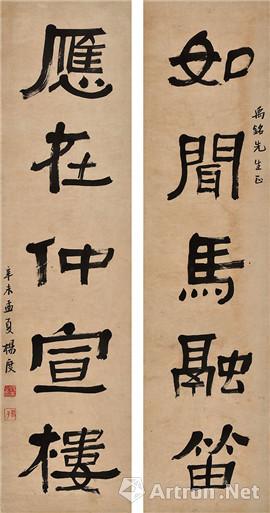 如聞馬融笛
禹銘先生正
應在仲宣樓
辛未孟夏楊度
Artron.Net